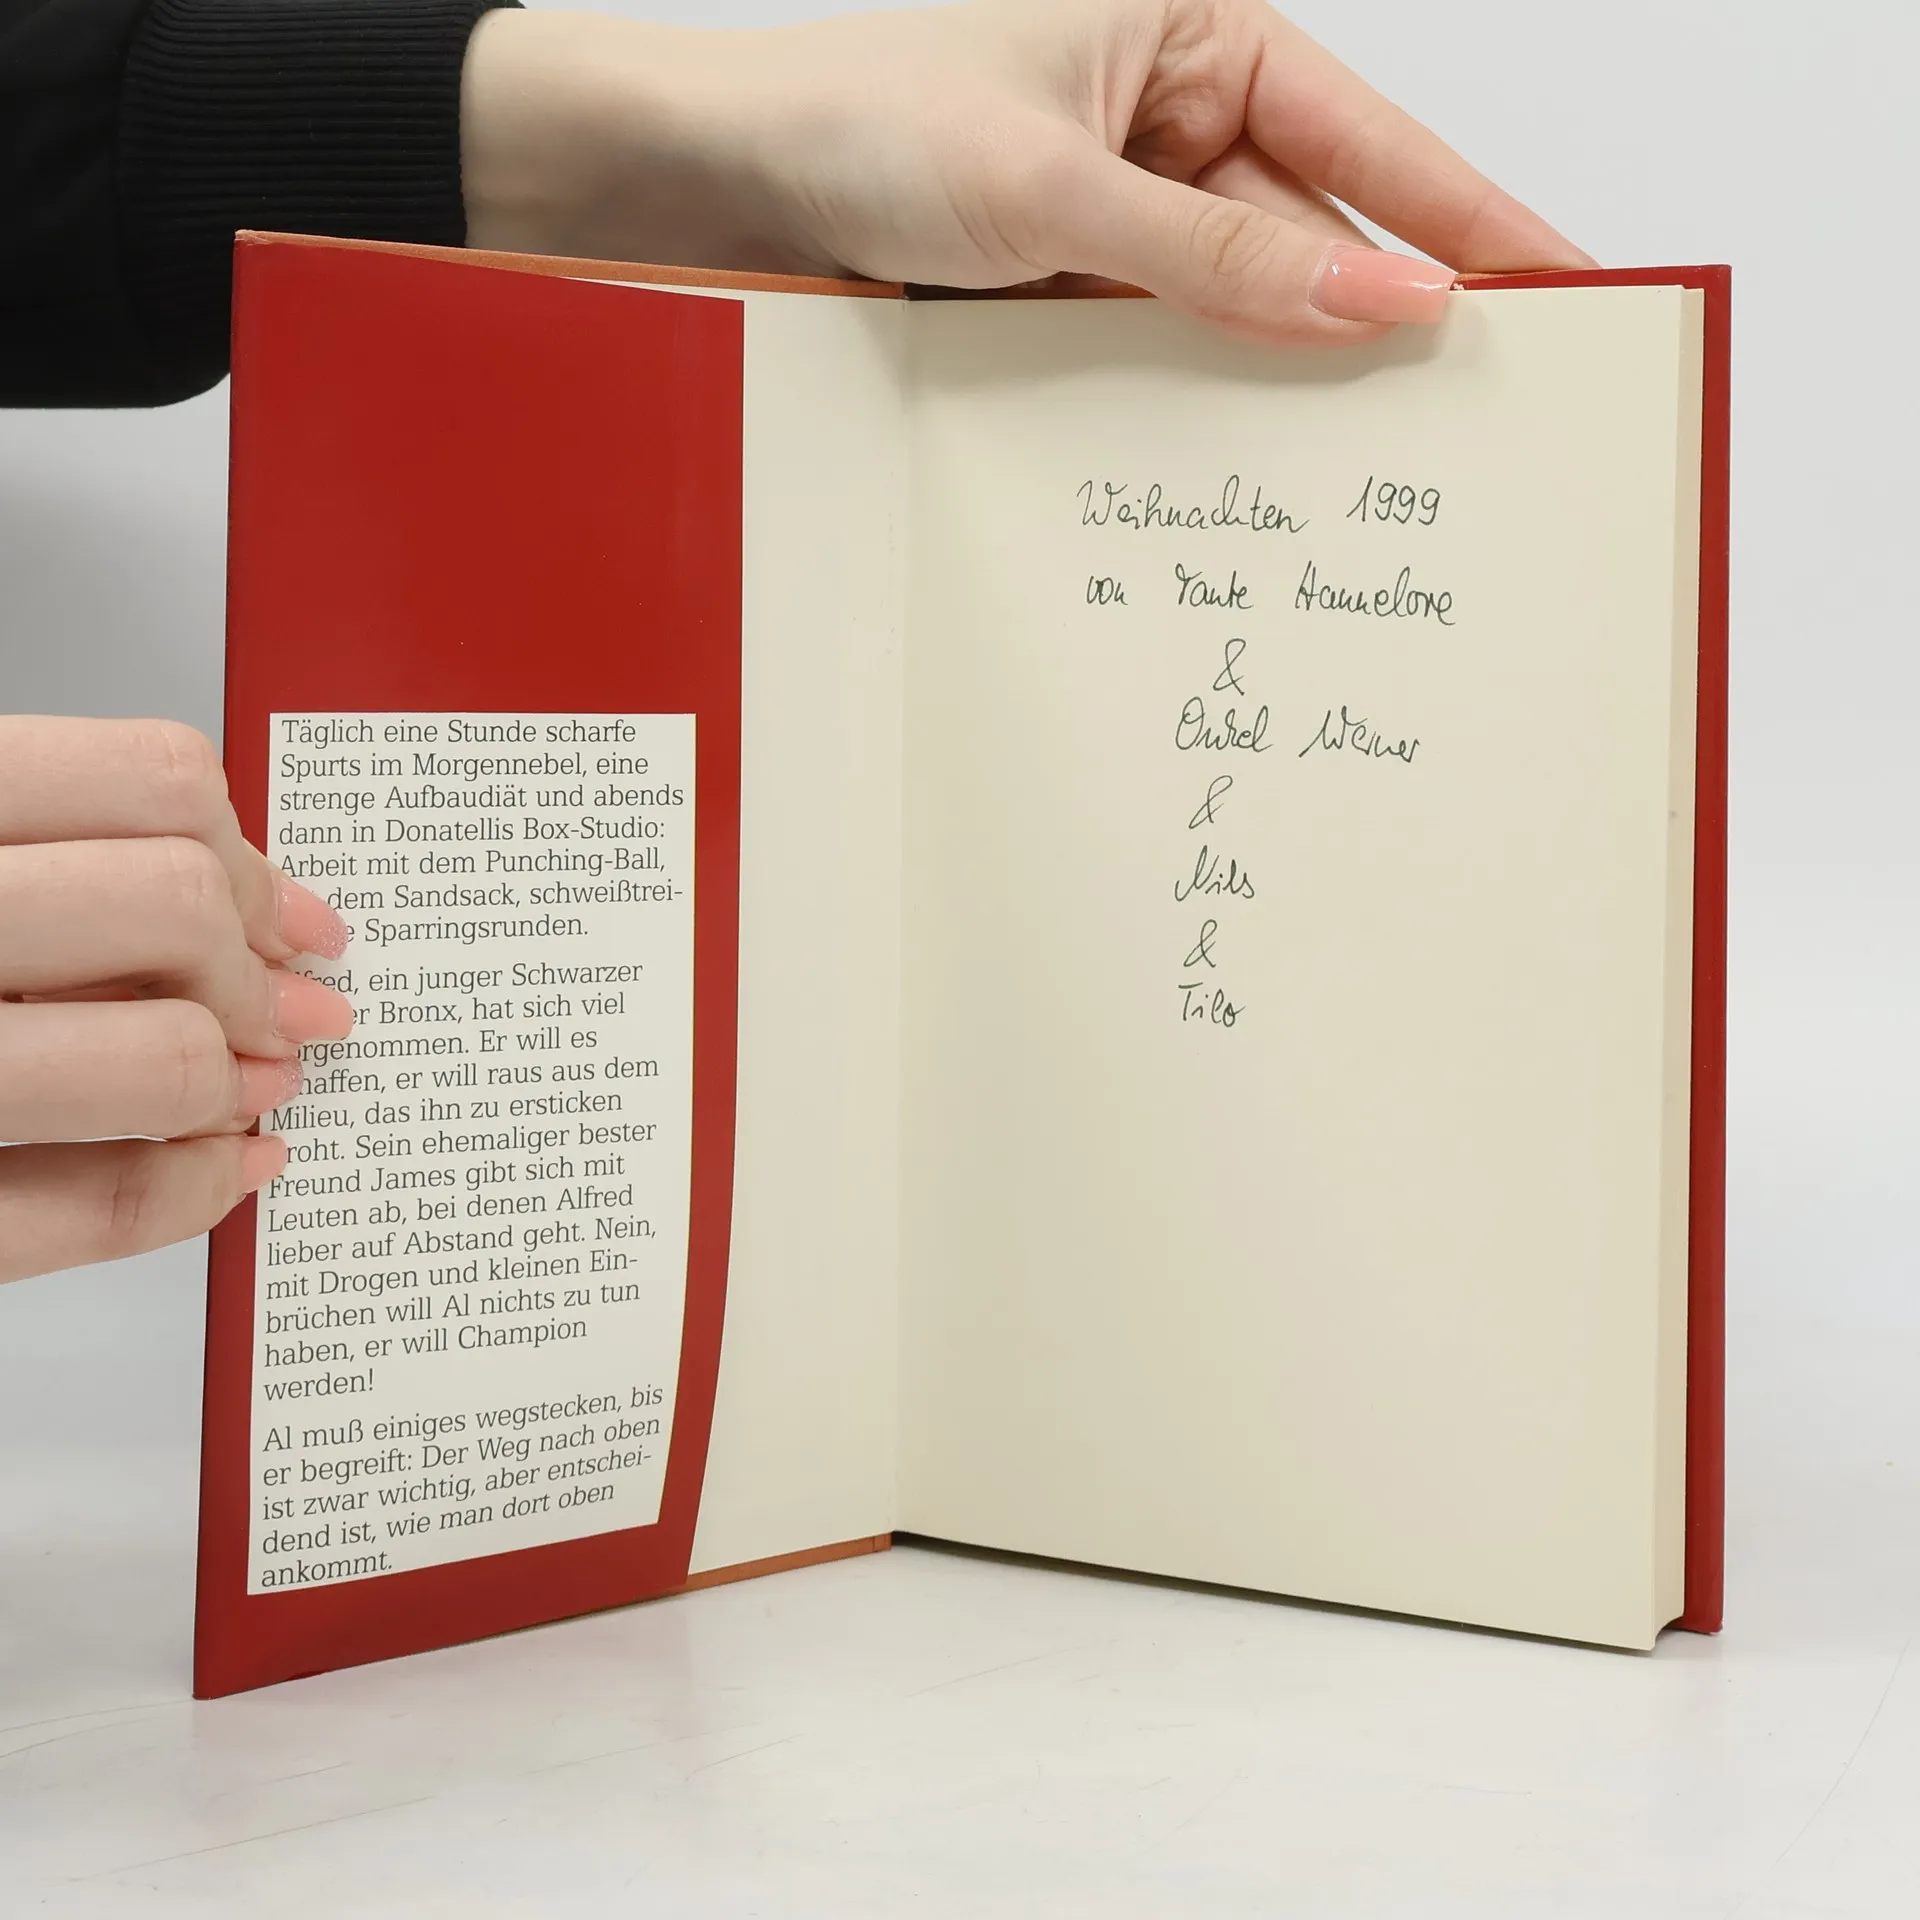 Täglich eine Stunde scharfe
Spurts im Morgennebel, eine
strenge Aufbaudiät und abends
dann in Donatellis Box-Studio:
Arbeit mit dem Punching-Ball,
dem Sandsack, schweißtrei-
Sparringsrunden.
ein junger Schwarzer
Bronx, hat sich viel
Er will es
er will raus aus dem
Milieu, das ihn zu ersticken
Sein ehemaliger bester
Freund James gibt sich mit
Leuten ab, bei denen Alfred
lieber auf Abstand geht. Nein,
mit Drogen und kleinen Ein-
brüchen will Al nichts zu tun
haben, er will Champion
werden!
Al muß einiges wegstecken, bis
er begreift: Der Weg nach oben
ist zwar wichtig, aber entschei-
dend ist, wie man dort oben
ankommt.
Weihnachten 1999
von Tante Hannelore
&
Onkel Werner
&
Nils
&
Tilo